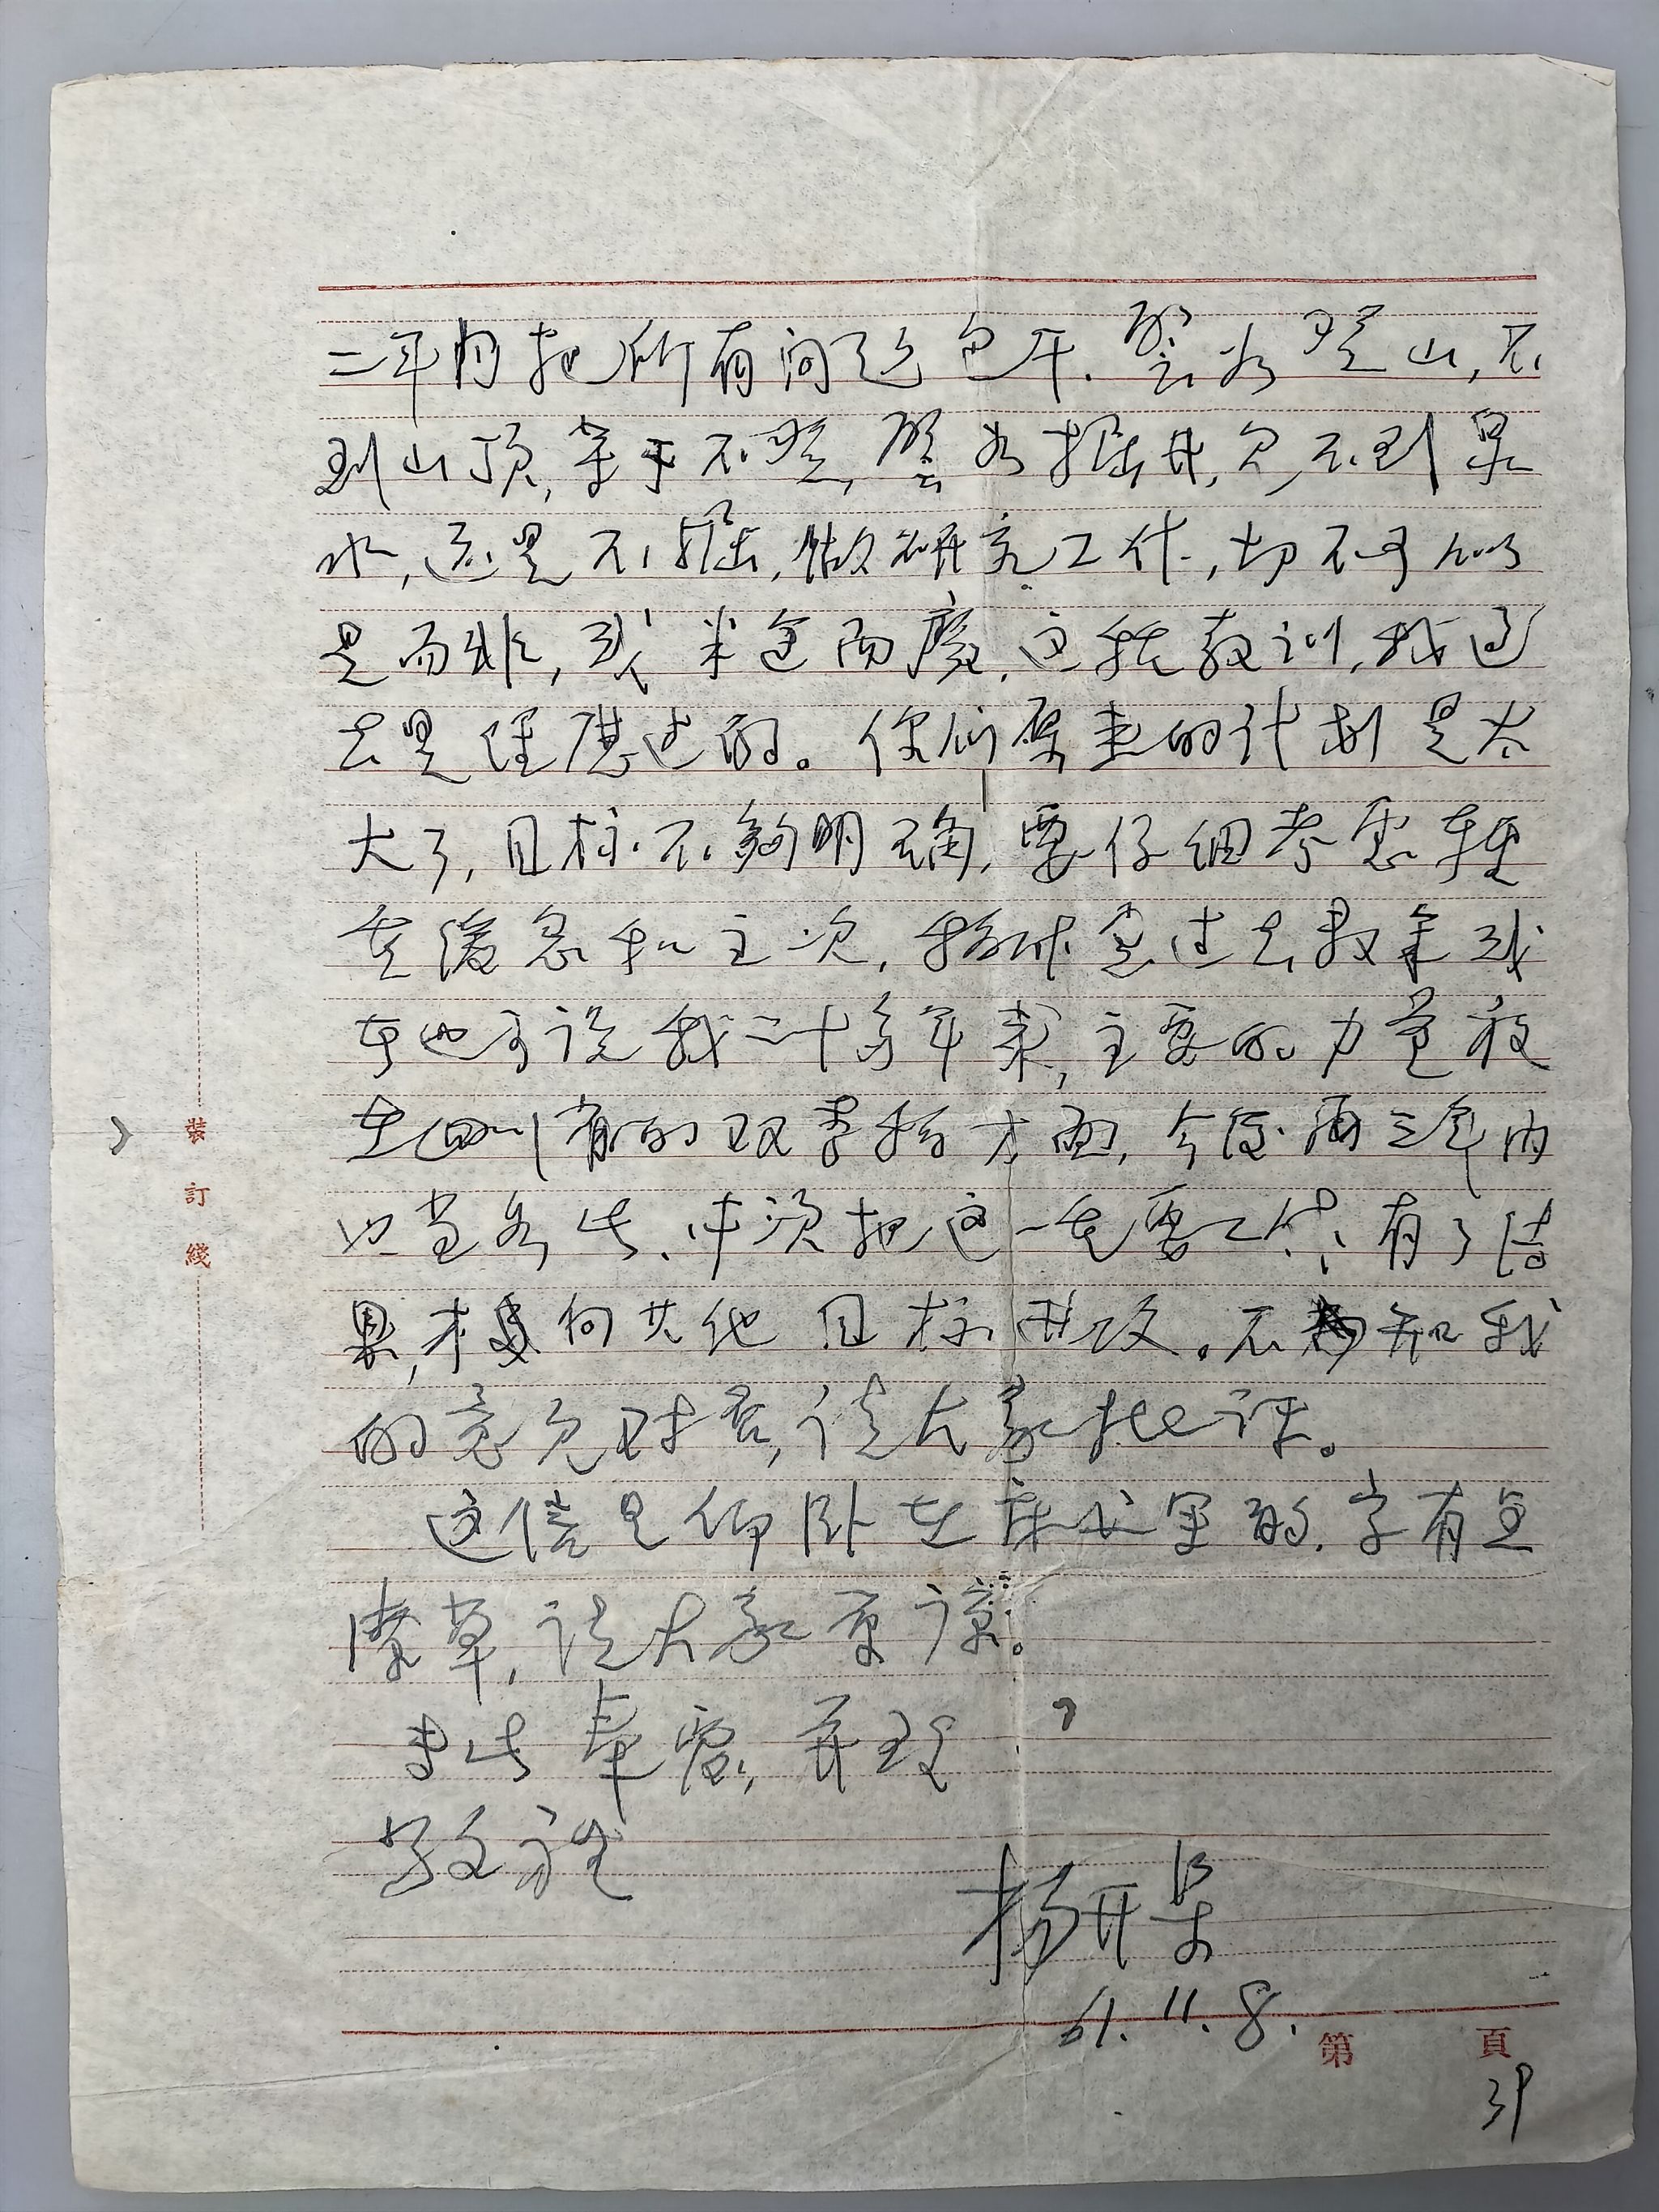 二年内把所有问题包干.譬如登山,不
到山顶,等于不登,譬如掘井,见不到泉
水,还是不掘,做研究工作,切不可似
是而非,或半途而废.这种教训,我过
去是经历过的。你们原来的计划是太
大了,目标不够明确,要仔细考虑轻
重缓急和主次,粉体室过去数年或
者也可说我二十多年来,主要的力量放
在四川省的双季稻方面,今后两三年内
以当如此.必须把这一重要工作,有了结
果,才向其他目标进攻.不知我
的意见对否,请大家批评。
这信是仰卧在床上写的.字有点
潦草,请大家原谅。
专此奉虑,并致
敬礼
杨开渠
61.11.8.
第 頁
39
装訂綫